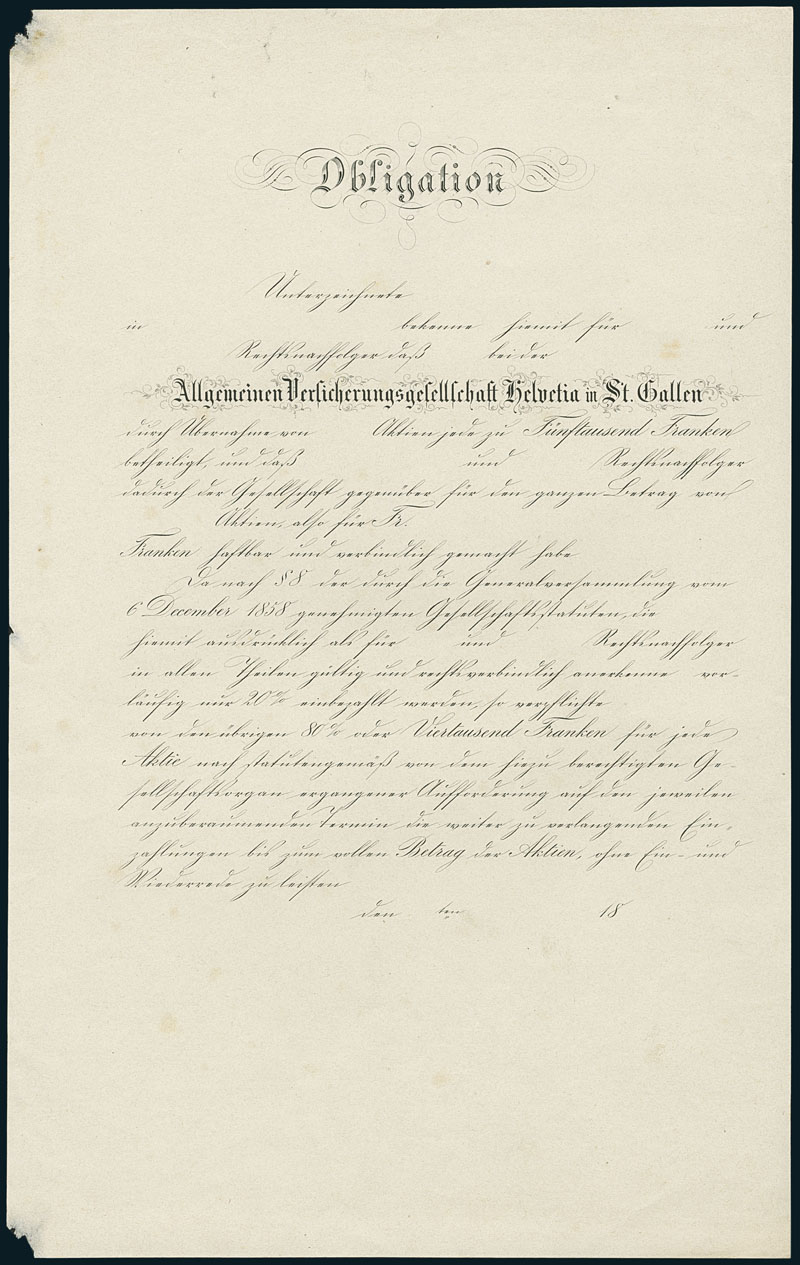 Obligation
Unterzeichnete
in bekenne hiemit für und
Rechtsnachfolger daß bei der
Allgemeinen Versicherungsgesellschaft Helvetia in St. Gallen
durch Übernahme von Aktien jede zu Fünftausend Franken
betheiligt, und daß und Rechtsnachfolger
dadurch der Gesellschaft gegenüber für den ganzen Betrag von
Aktien, also für Fr.
Franken haftbar und verbindlich gemacht habe
Da nach § 8 der durch die Generalversammlung vom
6 December 1858 genehmigten Gesellschaftsstatuten, die
hiemit ausdrücklich als für und Rechtsnachfolger
in allen Theilen gültig und rechtsverbindlich anerkenne vor-
läufig nur 20% einbezahlt werden, so verpflichte
von den übrigen 80% oder Viertausend Franken für jede
Aktie nach statutengemäß von dem hiezu berechtigten Ge-
sellschaftsorgan ergangener Aufforderung auf den jeweilen
anzuberaumenden Termin die weiter zu verlangenden Ein-
zahlungen bis zum vollen Betrag der Aktien, ohne Ein- und
Wiederrede zu leisten
den ten 18